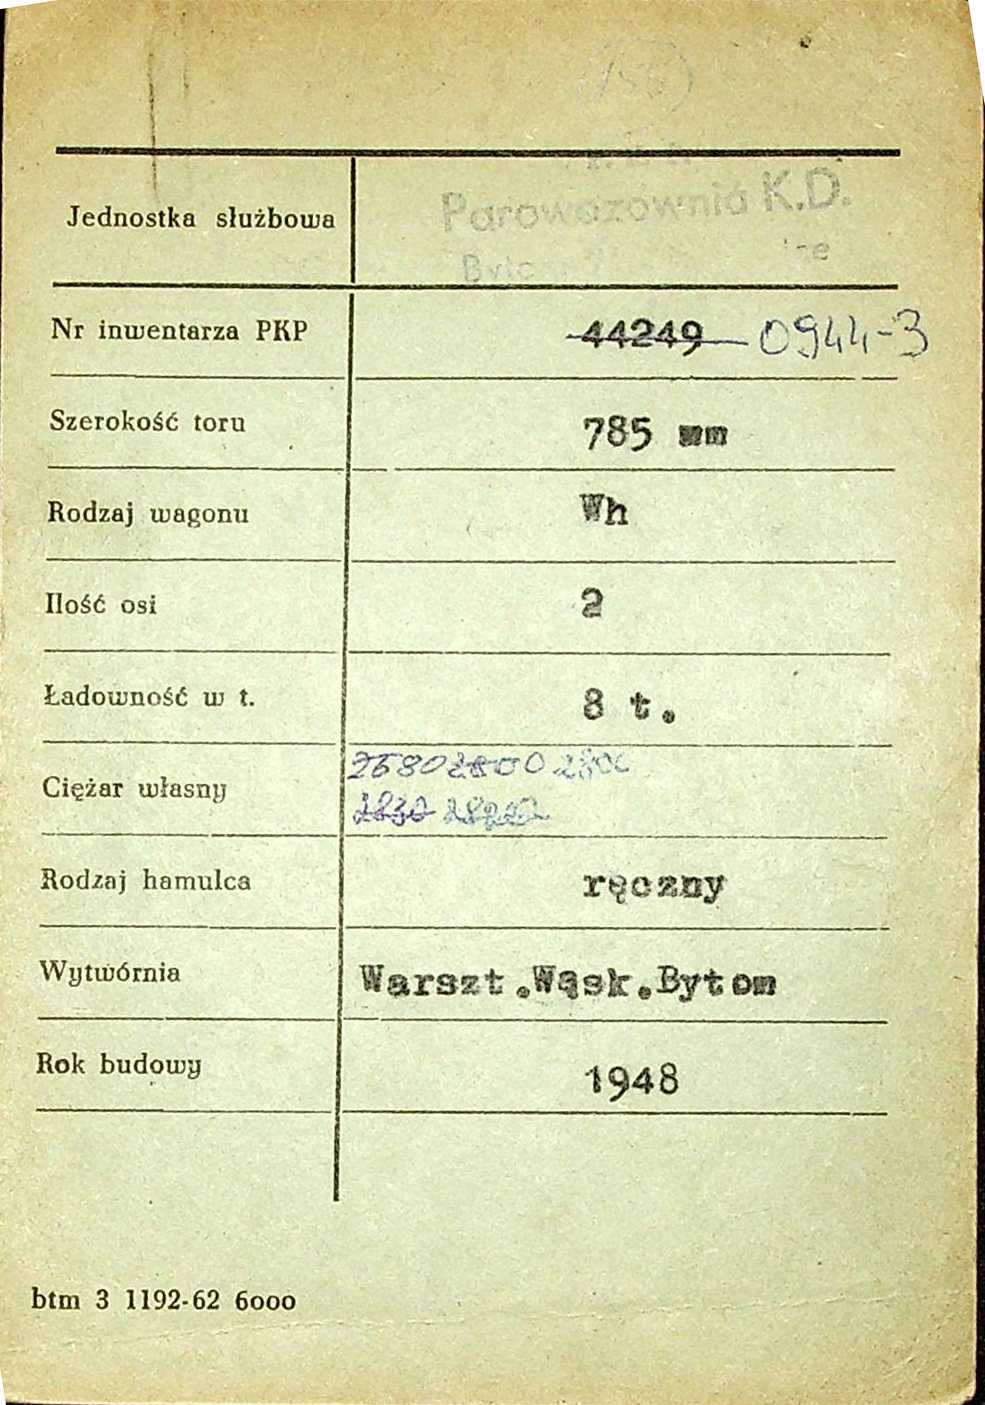 156
Jednostka służbowa
Parowozownia K.D.
Nr inwentarza PKP 44249 0944-3
Szerokość toru 785 mm
Rodzaj wagonu Wh
Ilość osi 2
Ładowność w t. 8 t.
Ciężar własny 2680 2800 2800
2830 2820
Rodzaj hamulca ręczny
Wytwórnia Warszt.Wąsk.Bytom
Rok budowy 1948
btm 3 1192-62 6000